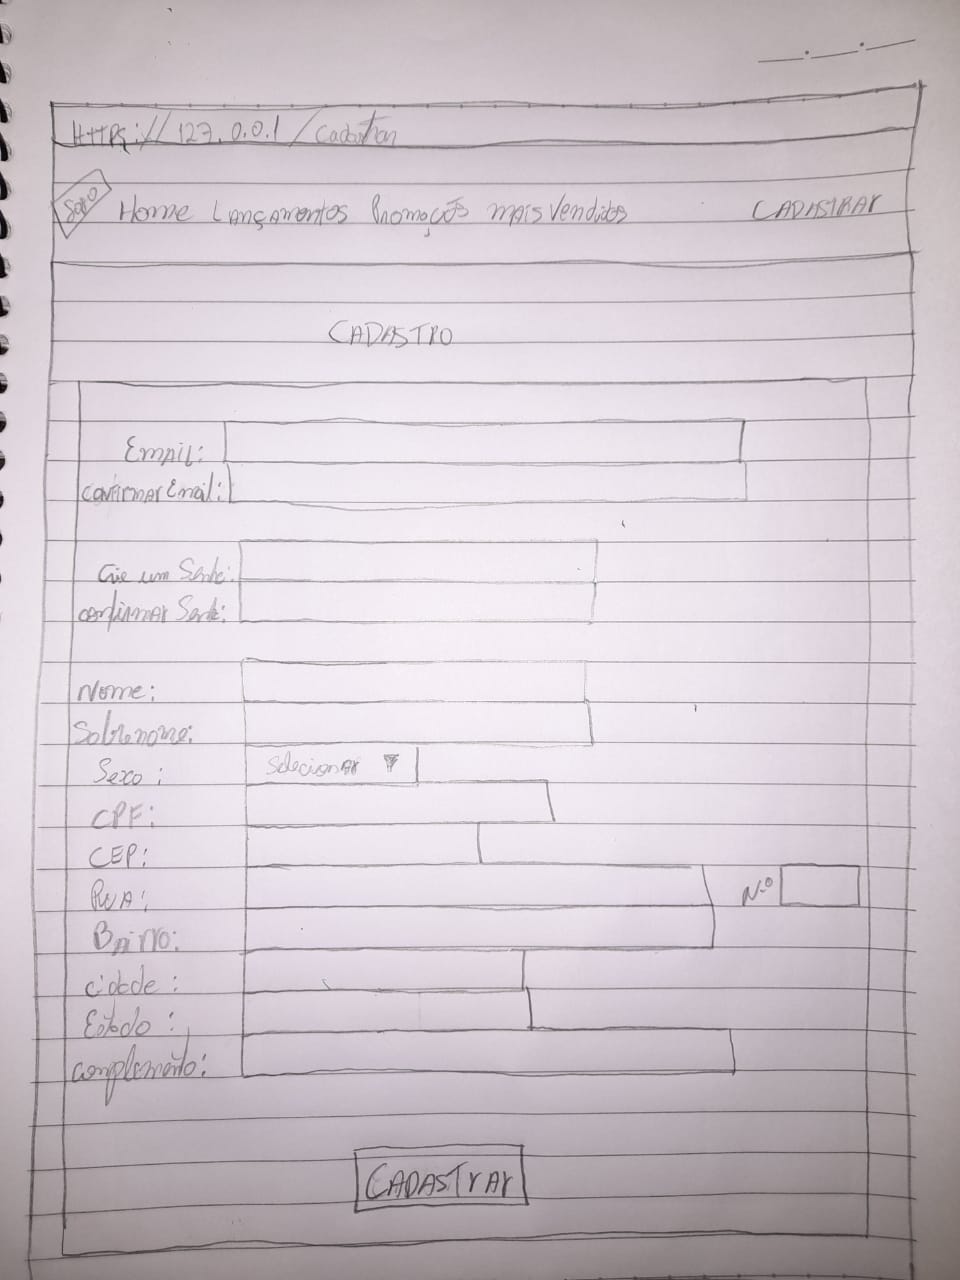 HTTPS://127.0.0.1/Cadastrar
Home Lançamentos Promoções mais Vendidos CADASTRAR
CADASTRO
Email:
confirmar Email:
Crie um Senha:
confirmar Senha:
Nome:
Sobrenome:
Sexo: Selecionar
CPF:
CEP:
RUA: N.º
Bairro:
cidade:
Estado:
complemento:
CADASTrAr